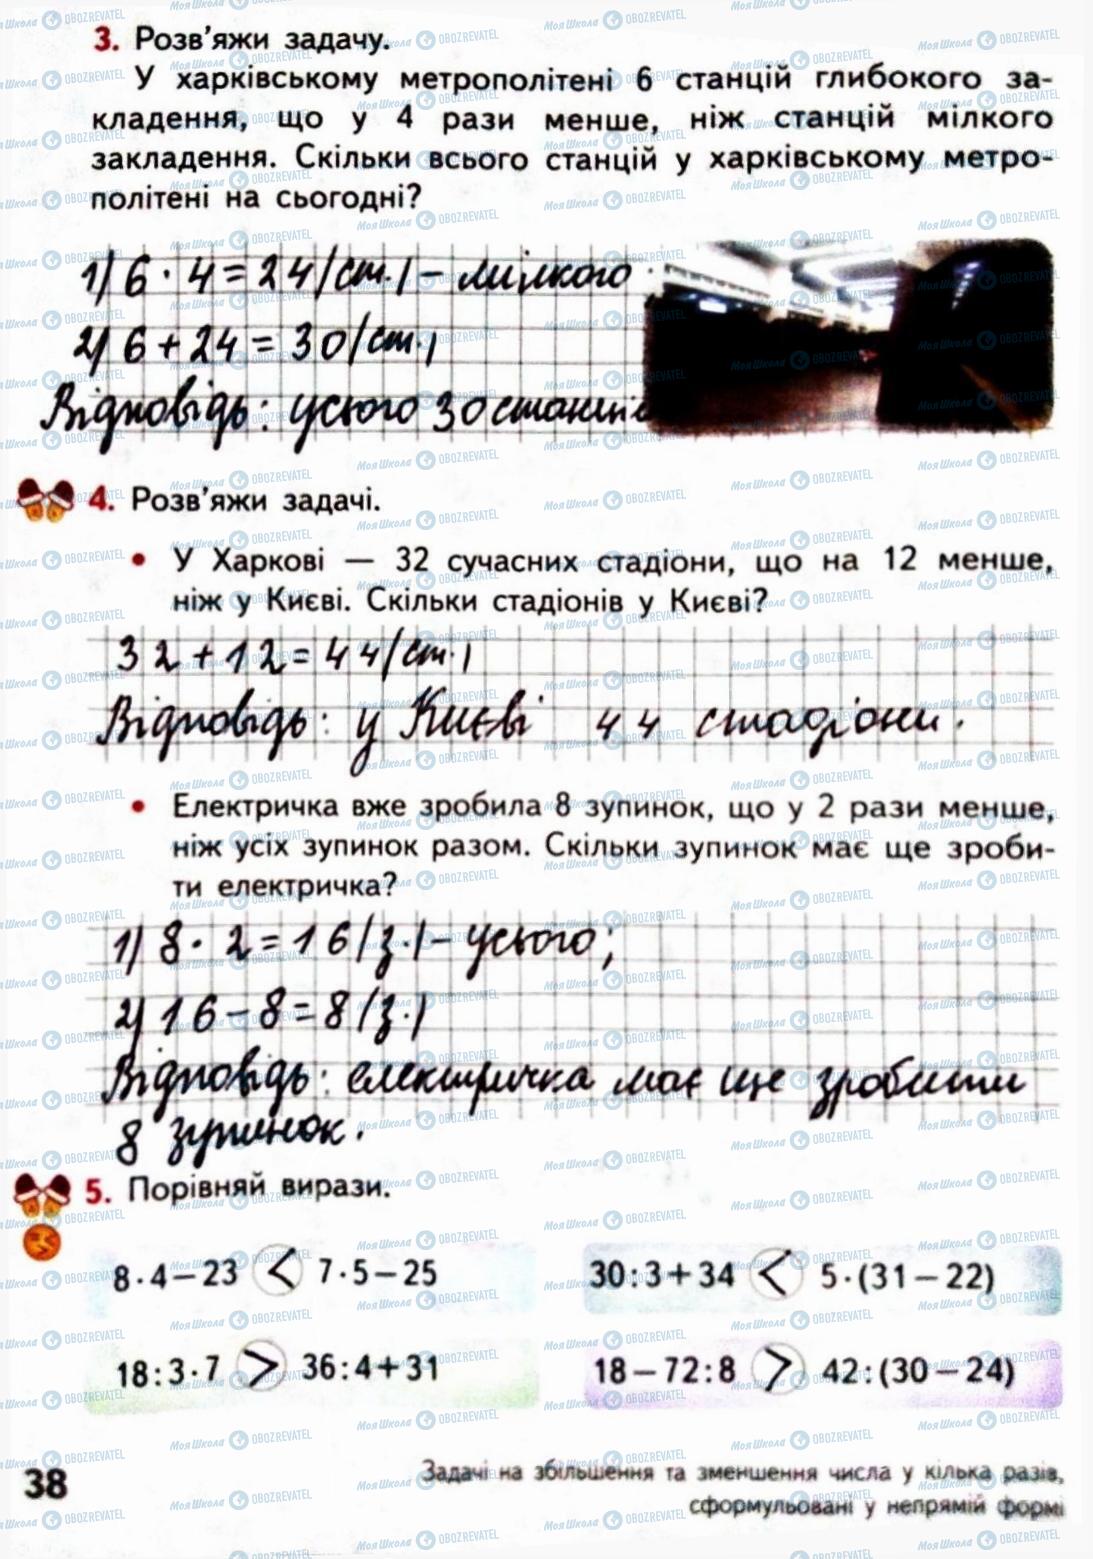 3. Розв'яжи задачу.
У харківському метрополітені 6 станцій глибокого за-
кладення, що у 4 рази менше, ніж станцій мілкого
закладення. Скільки всього станцій у харківському метро-
політені на сьогодні?
1) 6 · 4 = 24 (ст.) – мілкого
2) 6 + 24 = 30 (ст.)
Відповідь: усього 30 станцій
4. Розв'яжи задачі.
• У Харкові — 32 сучасних стадіони, що на 12 менше,
ніж у Києві. Скільки стадіонів у Києві?
32 + 12 = 44 (ст.)
Відповідь: у Києві 44 стадіони.
• Електричка вже зробила 8 зупинок, що у 2 рази менше,
ніж усіх зупинок разом. Скільки зупинок має ще зроби-
ти електричка?
1) 8 · 2 = 16 (з.) – усього;
2) 16 – 8 = 8 (з.)
Відповідь: електричка має ще зробити
8 зупинок.
5. Порівняй вирази.
8 · 4 – 23 < 7 · 5 – 25 30 : 3 + 34 < 5 · (31 – 22)
18 : 3 · 7 > 36 : 4 + 31 18 – 72 : 8 > 42 : (30 – 24)
Задачі на збільшення та зменшення числа у кілька разів,
38 сформульовані у непрямій формі
МояШкола OBOZREVATEL